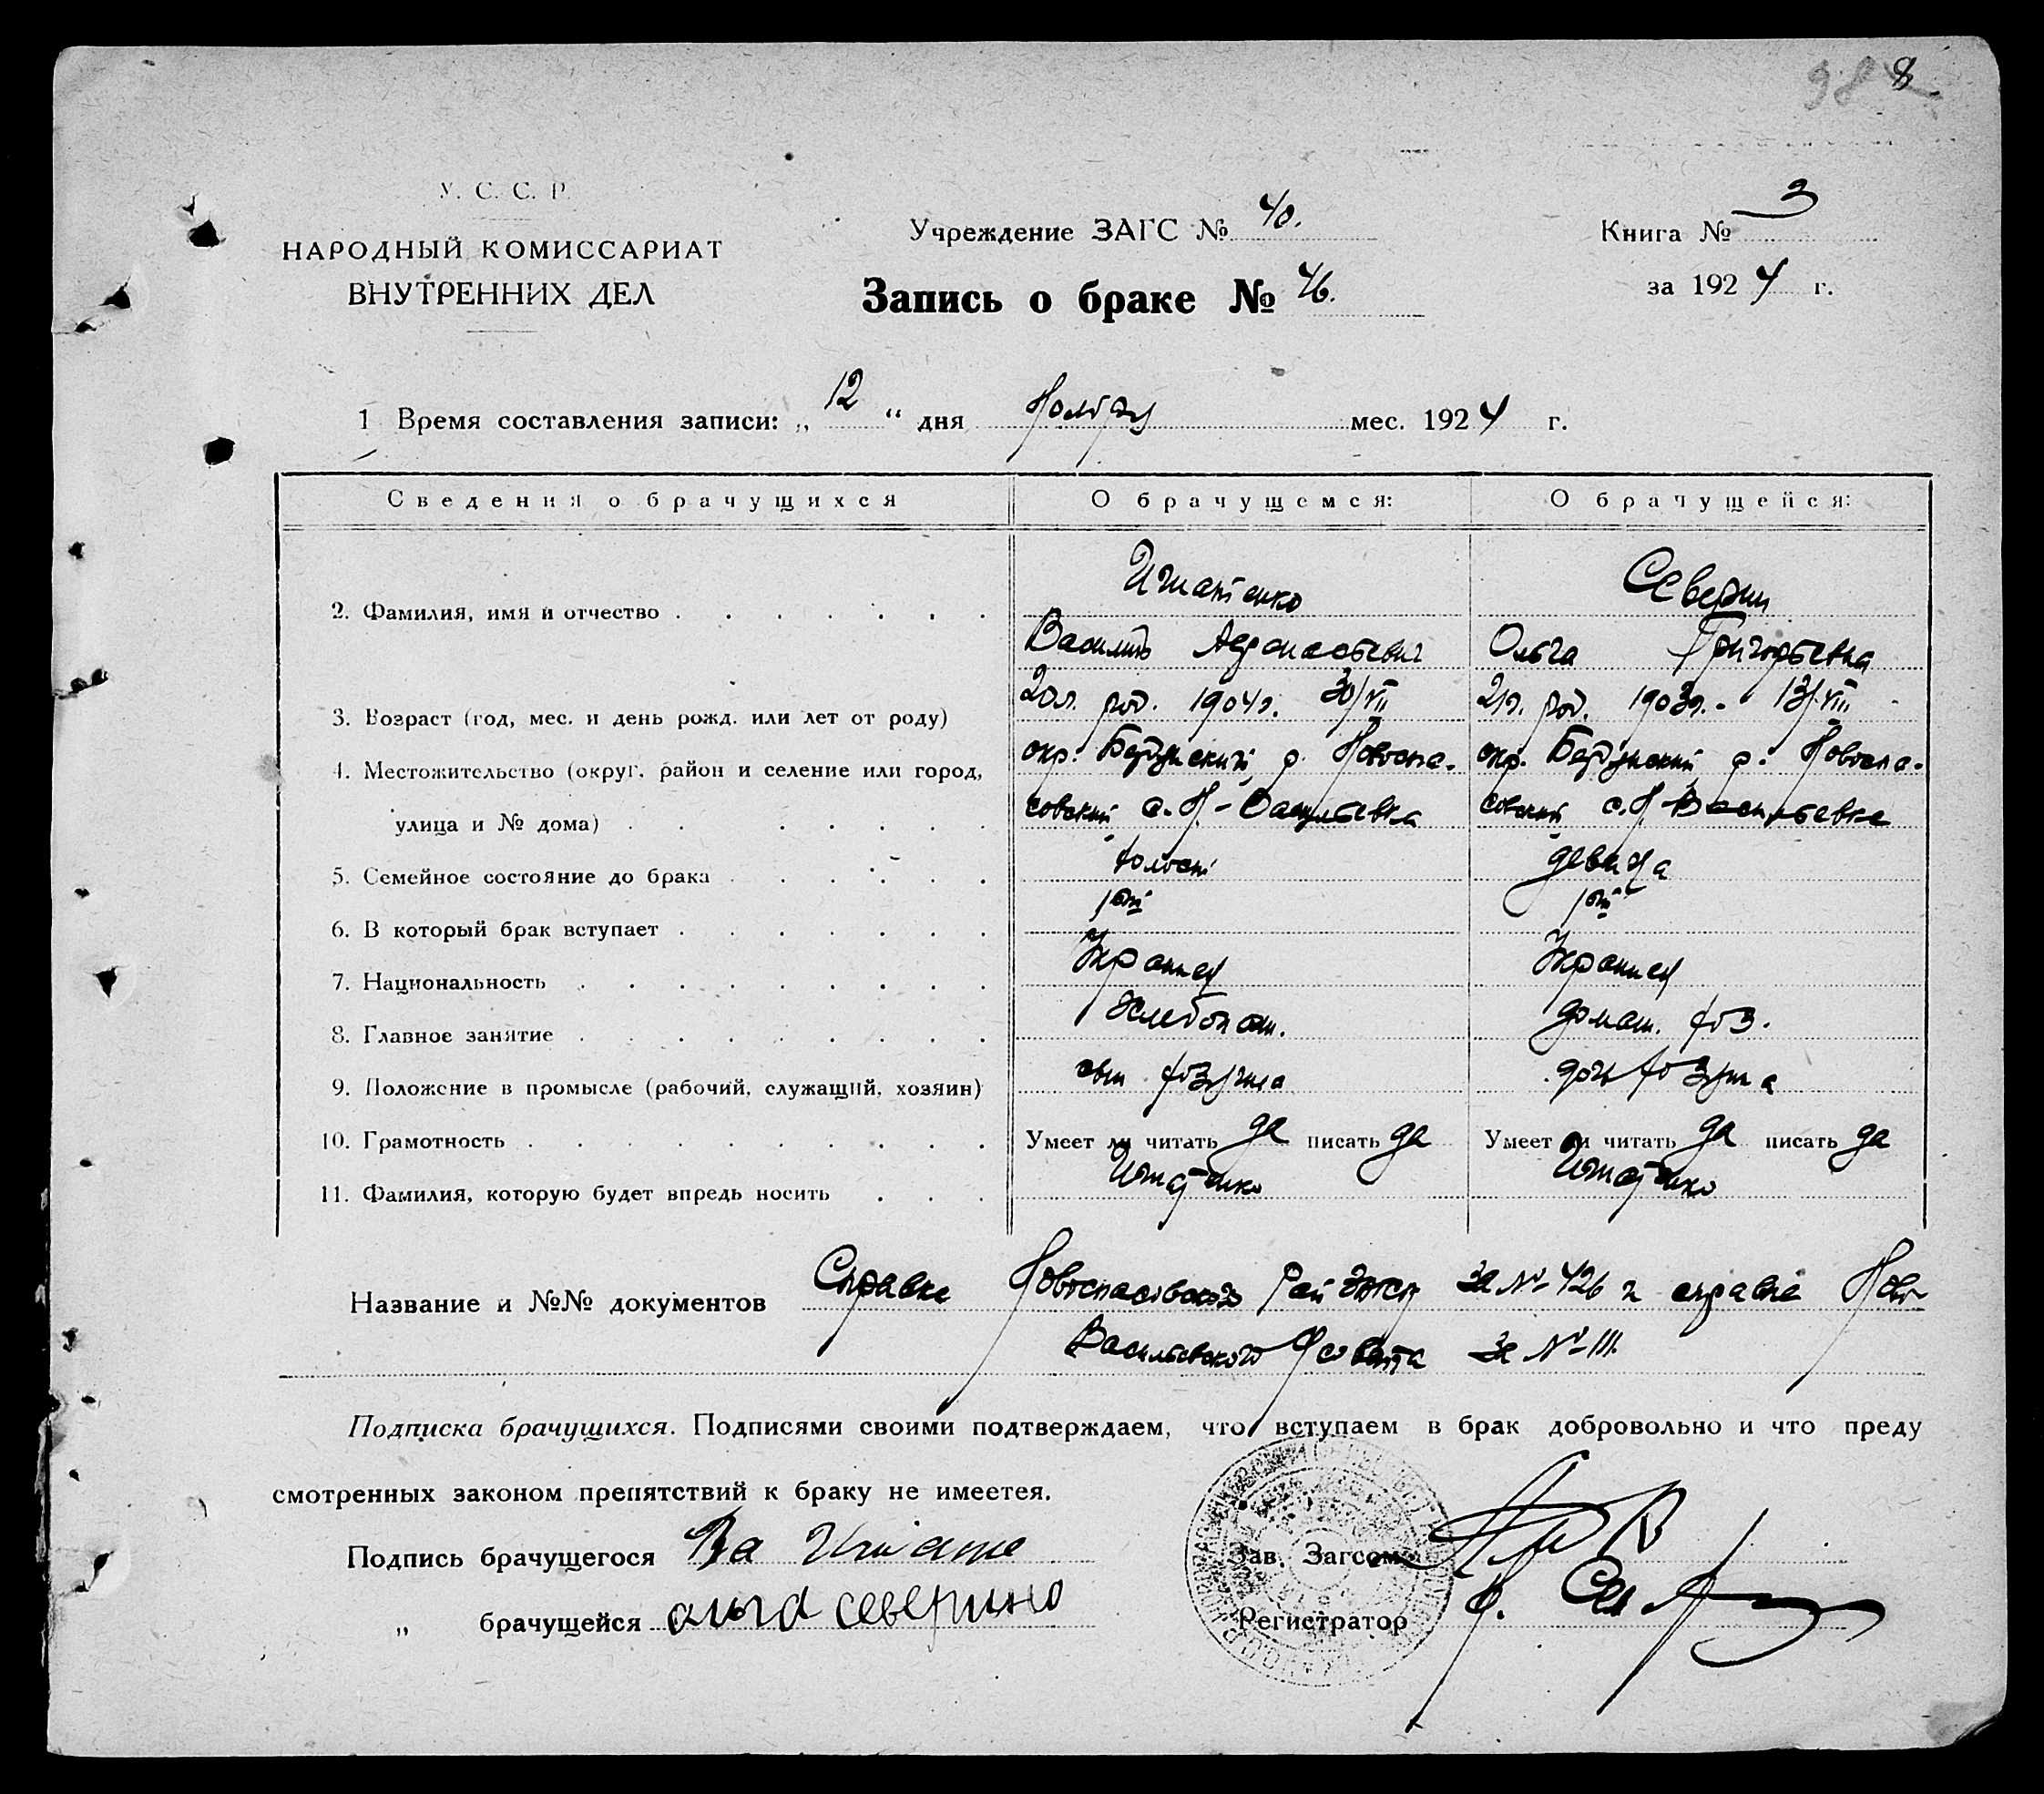 8
У. С. С. Р.
НАРОДНЫЙ КОМИССАРИАТ
ВНУТРЕННИХ ДЕЛ
Учреждение ЗАГС № 40.
Запись о браке № 46.
Книга № 3
за 1924 г.
1 Время составления записи: „ 12 “ дня Ноября мес. 1924 г.
Сведения о брачущихся
О брачущемся:
О брачущейся:
2. Фамилия, имя и отчество
Игнатенко
Василий Афанасьевич
Северин
Ольга Григорьевна
3. Возраст (год, мес. и день рожд. или лет от роду)
20л. род. 1904г. 30/VII
21г. род. 1903г. 13/VIII
4. Местожительство (округ, район и селение или город,
улица и № дома)
окр. Бердянский р. Новоспа-
совский с. Н-Васильевка
окр. Бердянский р. Новоспа-
совский с. Н-Васильевка
5. Семейное состояние до брака
холост
девица
6. В который брак вступает
1ый
1ый
7. Национальность
Украинец
Украинец
8. Главное занятие
Хлебопаш.
домаш. хоз.
9. Положение в промысле (рабочий, служащий, хозяин)
сын хозяина
дочь хозяина
10. Грамотность
Умеет ли читать да писать да
Умеет ли читать да писать да
11. Фамилия, которую будет впредь носить
Игнатенко
Игнатенко
Название и №№ документов Справка Новоспасовского Рай за № 426 и справка Ново
Васильевского С/совета за № 111.
Подписка брачущихся. Подписями своими подтверждаем, что вступаем в брак добровольно и что преду
смотренных законом препятствий к браку не имеетея.
Подпись брачущегося Ва Игнате
„ брачущейся ольга северино
Зав. Загсом
Регистратор